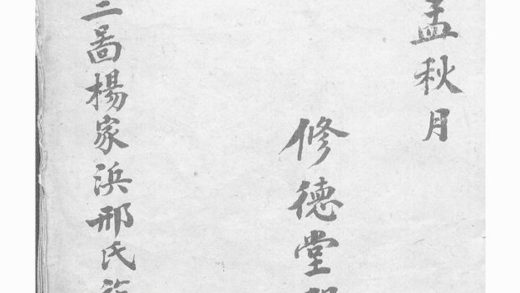 孟秋月
修德堂
二啚楊家浜邢氏